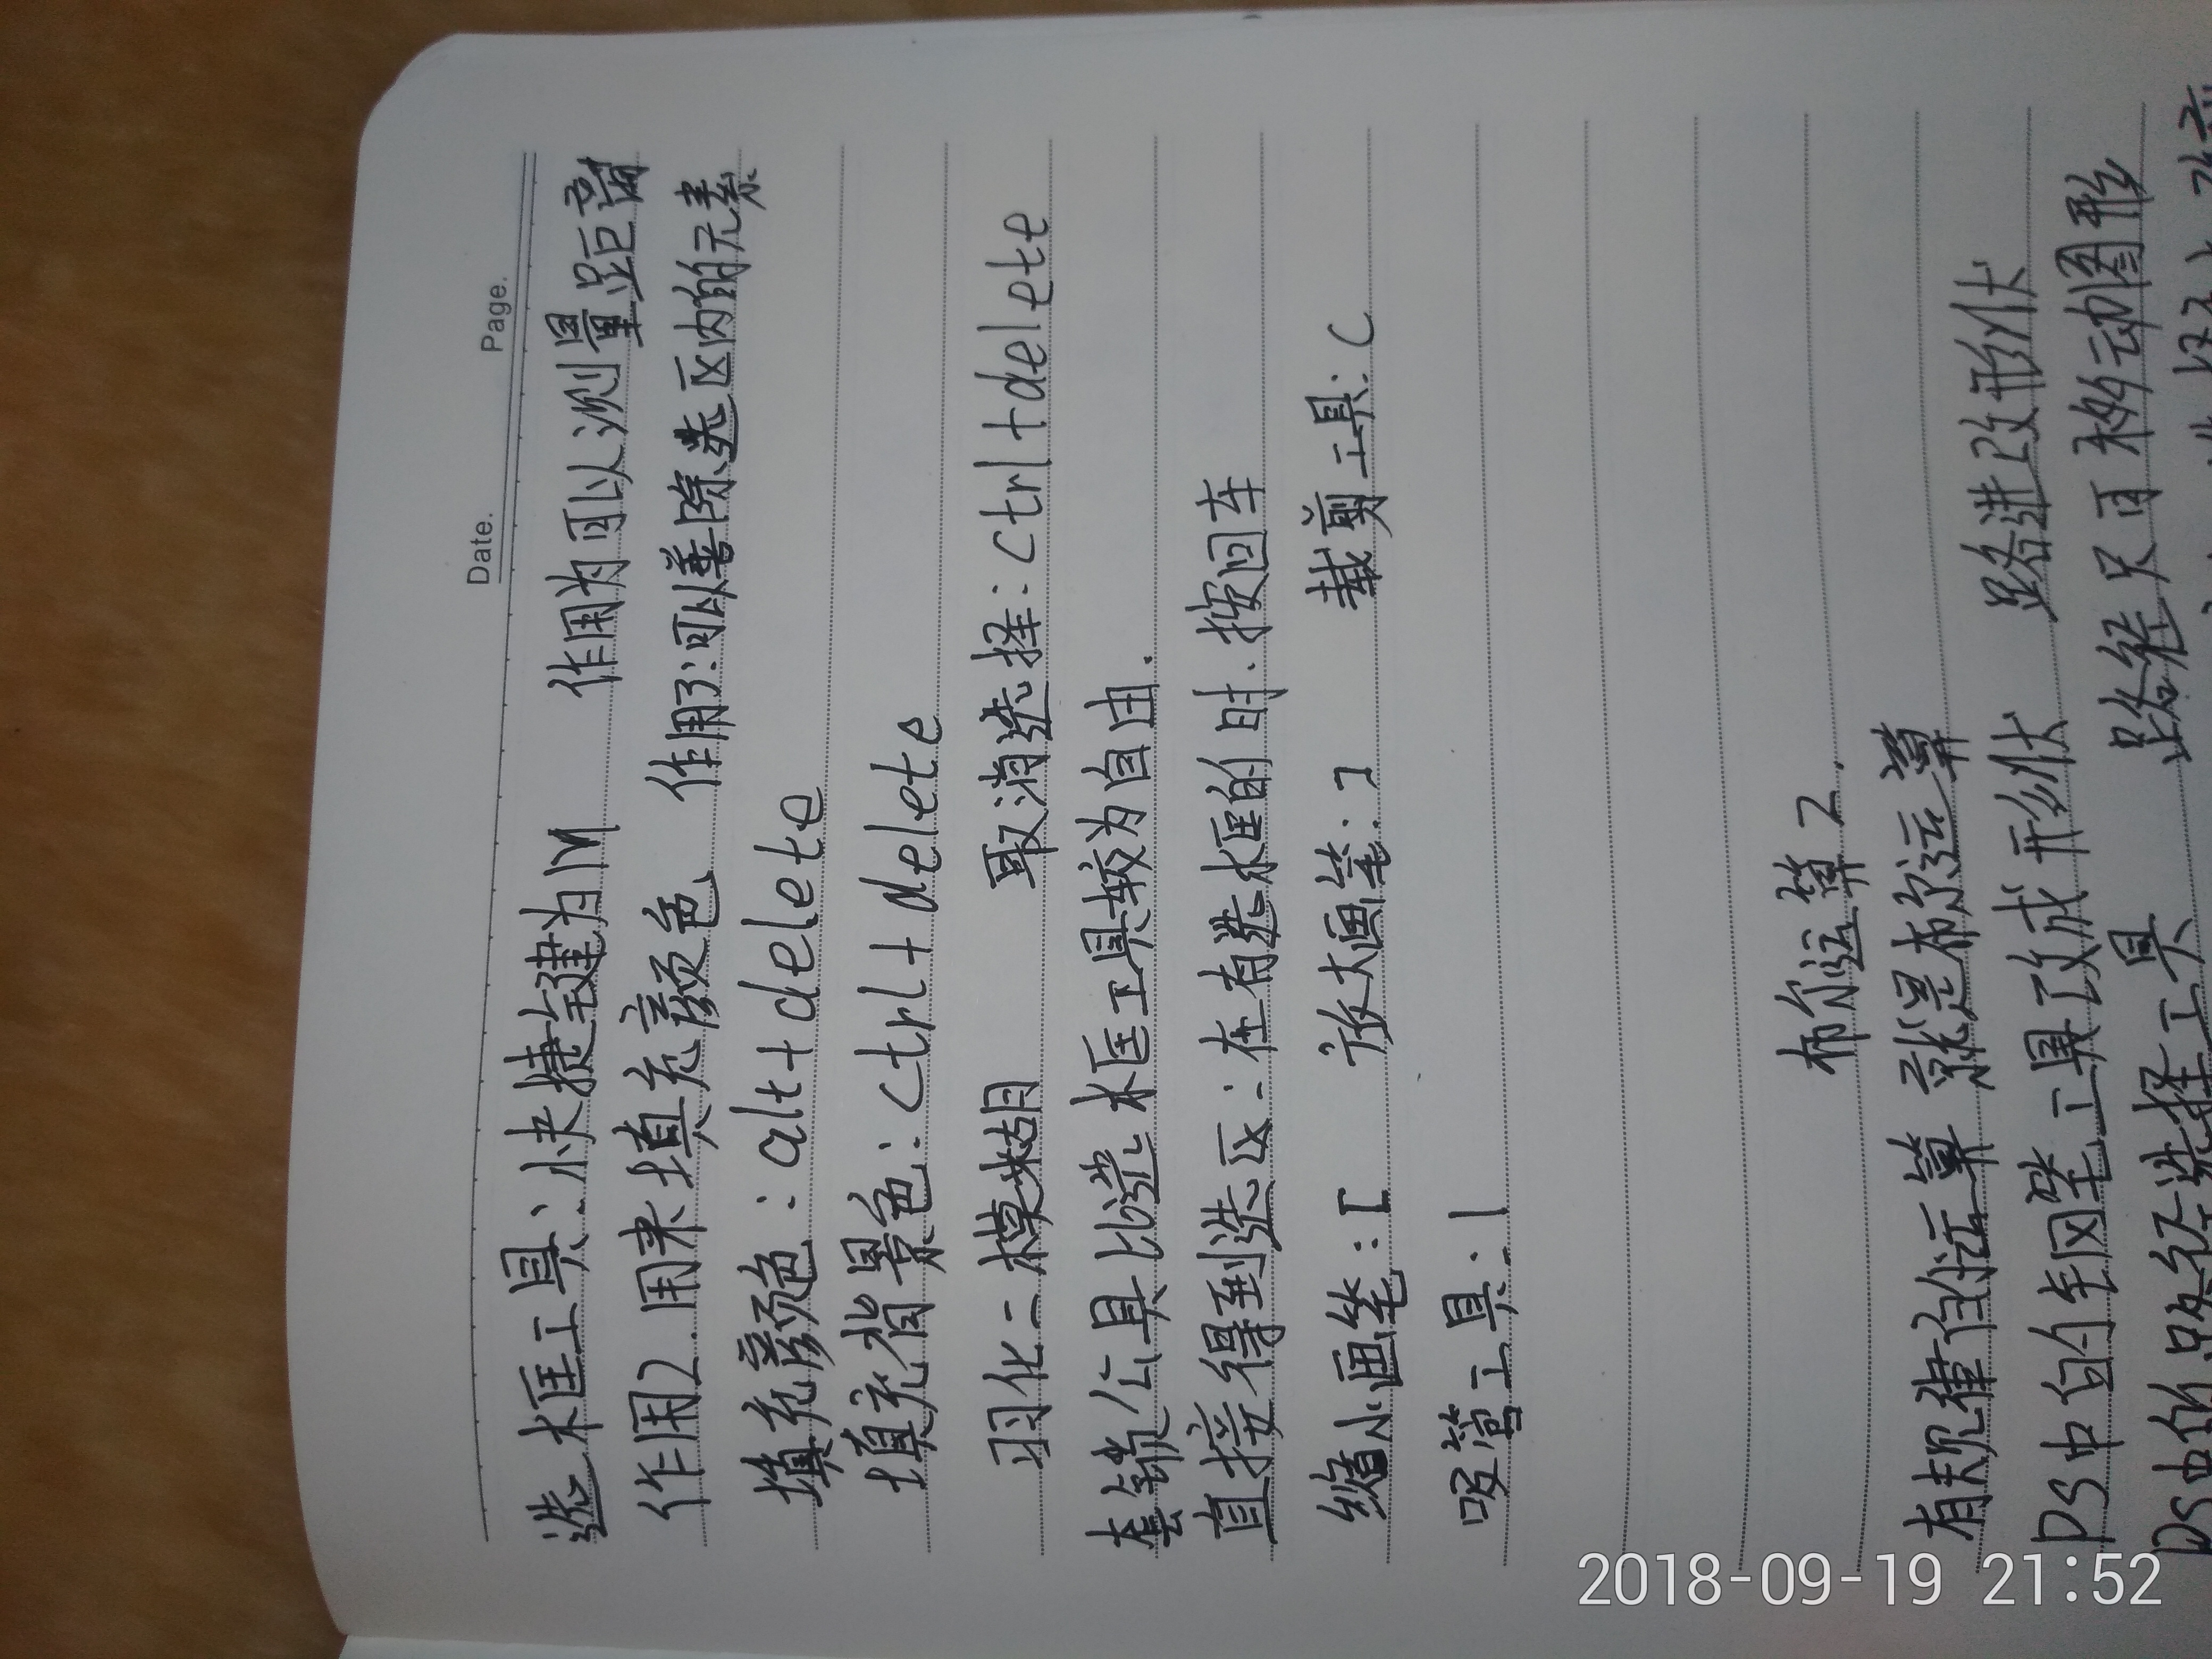 Date. Page.
选框工具:快捷键为M 作用为可以测量距离
作用2.用来填充颜色 作用3:可以善除选区内的元素
填充颜色:alt+delete
填充背景色:ctrl+delete
羽化=模糊 取消选择:ctrl+delete
套锁公具比选框工具较为自由.
直接得到选区:在有选框的时.按回车
缩小画笔:[ 放大画笔:] 裁剪工具:C
吸管工具:I
布尔运算2.
有规律的运算 就是布尔运算
PS中的钢笔工具改成形状 路进改形状
PS中的路径选择工具 路径只可移动图形
2018-09-19 21:52